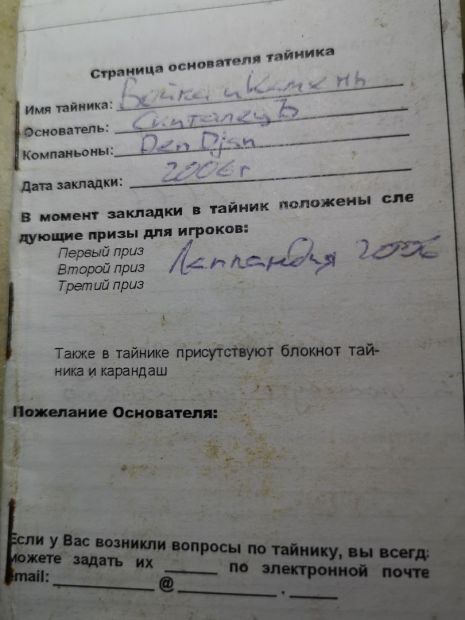 Страница основателя тайника
Имя тайника: Война и Камень
Основатель: СкиталецЪ
Компаньоны: Den Djan
Дата закладки: 2006 г
В момент закладки в тайник положены сле
дующие призы для игроков:
Первый приз
Второй приз Лапландия 2006
Третий приз
Также в тайнике присутствуют блокнот тай-
ника и карандаш
Пожелание Основателя:
Если у Вас возникли вопросы по тайнику, вы всегда
можете задать их _____ по электронной почте
email: __________ @ __________ . _____